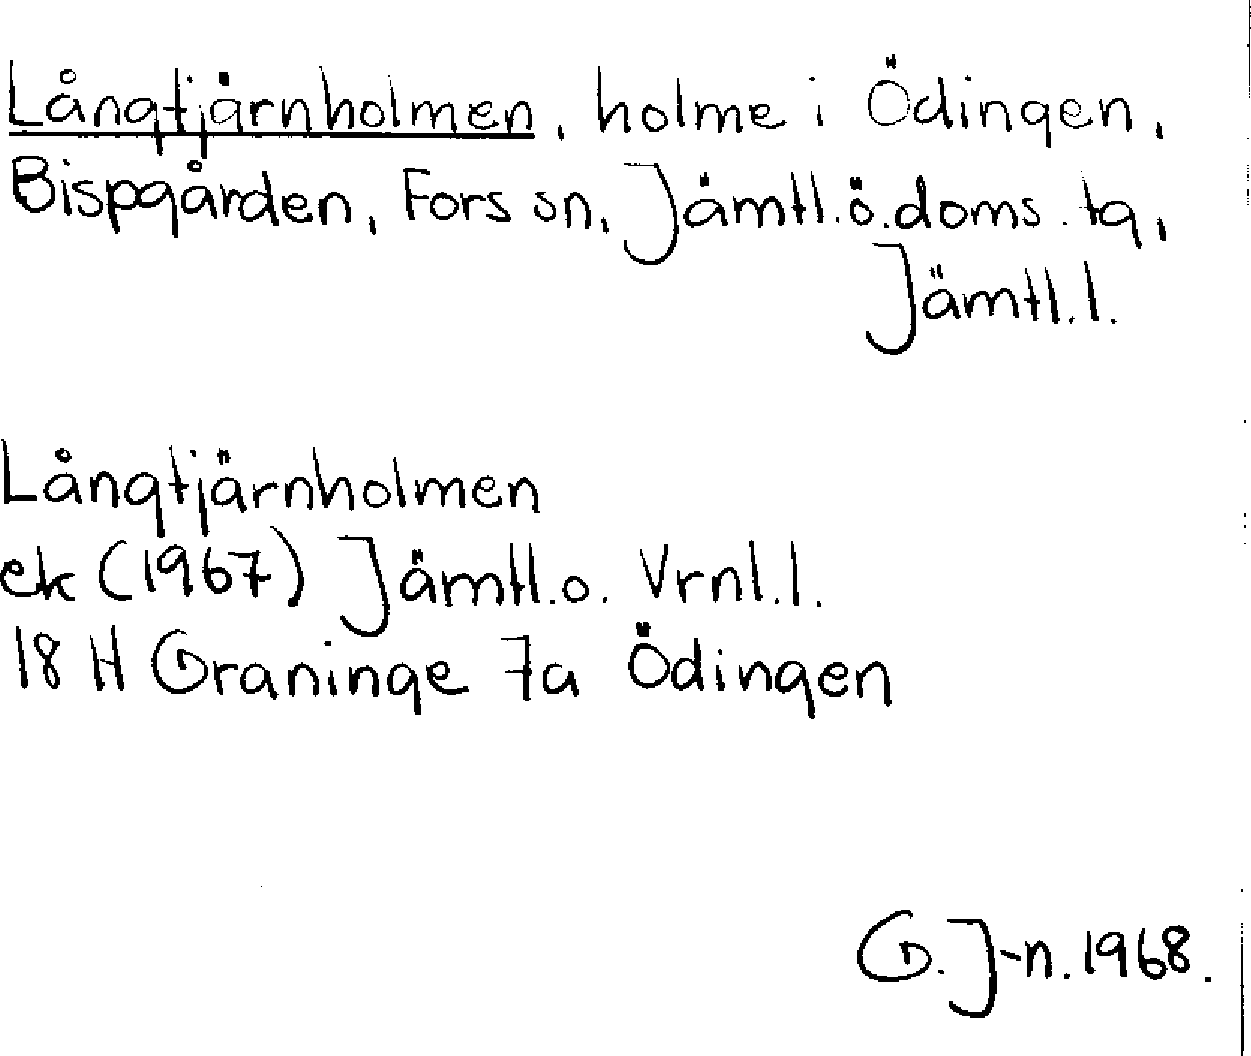 Långtjärnholmen, holme i Ödingen,
Bispgården, Fors sn, Jämtl.ö.doms.tg,
Jämtl.l.
Långtjärnholmen
ek (1967) Jämtl.o. Vrnl.l.
18 H Graninge 7a Ödingen
G. J-n. 1968.